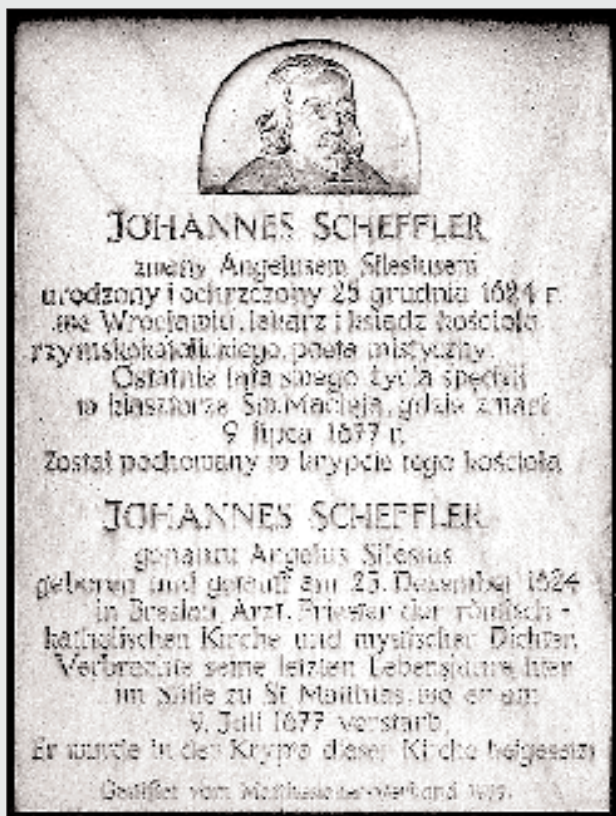 JOHANNES SCHEFFLER
zwany Angelusem Silesiusem
urodzony i ochrzczony 25 grudnia 1624 r.
we Wrocławiu, lekarz i ksiądz kościoła
rzymskokatolickiego, poeta mistyczny.
Ostatnie lata swego życia spędził
w klasztorze Św. Macieja, gdzie zmarł
9 lipca 1677 r.
Został pochowany w krypcie tego kościoła
JOHANNES SCHEFFLER
genannt Angelus Silesius
geboren und getauft am 25. Dezember 1624
in Breslau, Arzt, Priester der römisch-
katholischen Kirche und mystischer Dichter.
Verbrachte seine letzten Lebensjahre hier
im Stifte zu St. Matthias, wo er am
9. Juli 1677 verstarb.
Er wurde in der Krypta dieser Kirche beigesetzt
Gestiftet vom